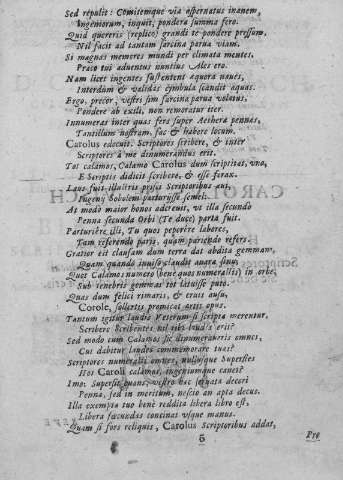 Sed repulit: Comitemque via aspernatus inanem,
Ingeniorum, inquit, pondera summa fero.
Quid quereris (replico) grandi te pondere pressum,
Nil facit ad tantam sarcina parua viam.
Si magnas memores mundi per climata mentes,
Præco tui aduentus nuntius Ales ero.
Nam licet ingentes sustentent æquora naues,
Interdum & validas cymbula scandit aquas.
Ergo, precor, vestri sim sarcina parua volatus,
Pondere ab exili, non remoratur iter.
Innumeras inter quas fers super Aethera pennas,
Tantillum nostram, fac & habere locum.
Carolus edocuit. Scriptores scribere, & inter
Scriptores à me dinumerandus erit.
Tot calamos, Calamo Carolus dum scriptitat, vno,
E Scriptis didicit scribere, & esse ferax.
Laus fuit illustris prosa Scriptoribus aui,
Ingenij Sobolem parturijsse semel:
At modo maior honos adcreuit, vt illa secundo
Penna secunda Orbi (Te duce) parta fuit.
Parturiere illi, Tu quos peperere labores,
Tam referendo paris, quam pariendo refers.
Gratior est clausam dum terra dat abdita gemmam,
Quam quando inuiso claudit auara sinu;
Quot Calamos numero (benè quos numerallis) in orbe,
Sub tenebris gemmas tot latuisse puto.
Quas dum felici rimaris, & eruis ausu,
Carole, sollertis promicat artis opus.
Tantum igitur laudis Veterum si scripta merentur,
Scribere Scribentes nil tibi laudis erit?
Sed modo cum Calamos sic dinumeraueris omnes,
Cui dabitur laudes commemorare tuas?
Scriptores numerasti omnes, nullusque Superstes
Hos Caroli calamos, ingeniumque canet?
Imo: Supersit quous; vestro hæc decori
Penna, sed in meritum, nescio an apta decus.
Illa exempta suo benè reddita libera libro est,
Libera fæcundas continat vsque manus.
Quam si fors reliquis, Carolus Scriptoribus addat,
6 Pro